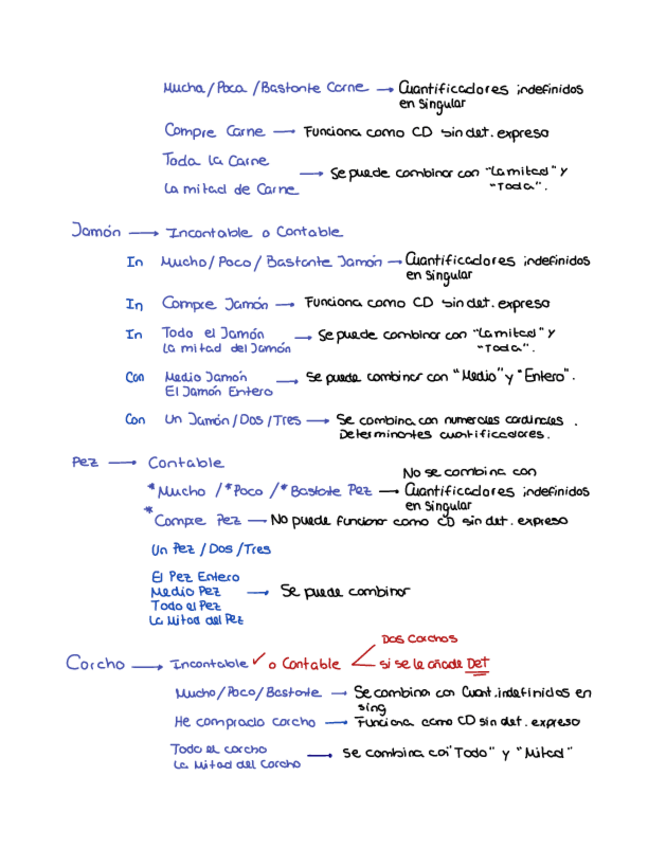 Mucha/Poca/Bastante Carne → Cuantificadores indefinidos
en singular
Compre Carne → Funciona como CD sin det. expreso
Toda la Carne
La mitad de Carne → Se puede combinar con "La mitad" y
"Toda".
Jamón → Incontable o Contable
In Mucho/Poco/Bastante Jamón → Cuantificadores indefinidos
en singular
In Compre Jamón → Funciona como CD sin det. expreso
In Todo el Jamón
La mitad del Jamón → Se puede combinar con "La mitad" y
"Toda".
Con Medio Jamón
El Jamón Entero → Se puede combinar con "Medio" y "Entero".
Con Un Jamón/Dos/Tres → Se combina con numerales cardinales.
Determinantes cuantificadores.
Pez → Contable
No se combina con
*Mucho/*Poco/*Bastate Pez → Cuantificadores indefinidos
en singular
*Compre Pez → No puede funcionar como CD sin det. expreso
Un Pez/Dos/Tres
El Pez Entero
Medio Pez → Se puede combinar
Todo el Pez
La Mitad del Pez
Dos Corchos
Corcho → Incontable ✓ o Contable < si se le añade Det
Mucho/Poco/Bastante → Se combina con Cuant. indefinidos en
sing
He comprado corcho → Funciona como CD sin det. expreso
Todo el corcho
La Mitad del Corcho → Se combina con "Todo" y "Mitad"